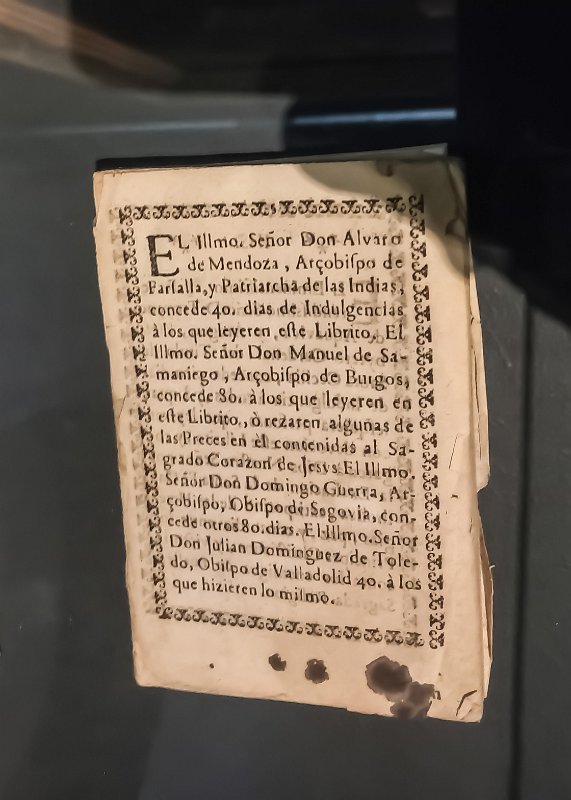 EL Illmo. Señor Don Alvaro
de Mendoza, Arçobiſpo de
Farſalla, y Patriarcha de las Indias,
concede 40. dias de Indulgencias
à los que leyeren eſte Librito. El
Illmo. Señor Don Manuel de Sa-
maniego, Arçobiſpo de Burgos,
concede 80. à los que leyeren en
eſte Librito, ò rezaren algunas de
las Preces en èl contenidas al Sa-
grado Corazon de Jesvs El Illmo.
Señor Don Domingo Guerra, Ar-
çobiſpo, Obiſpo de Segovia, con-
cede otros 80. dias. El Illmo. Señor
Don Julian Dominguez de Tole-
do, Obiſpo de Valladolid 40. à los
que hizieren lo miſmo.